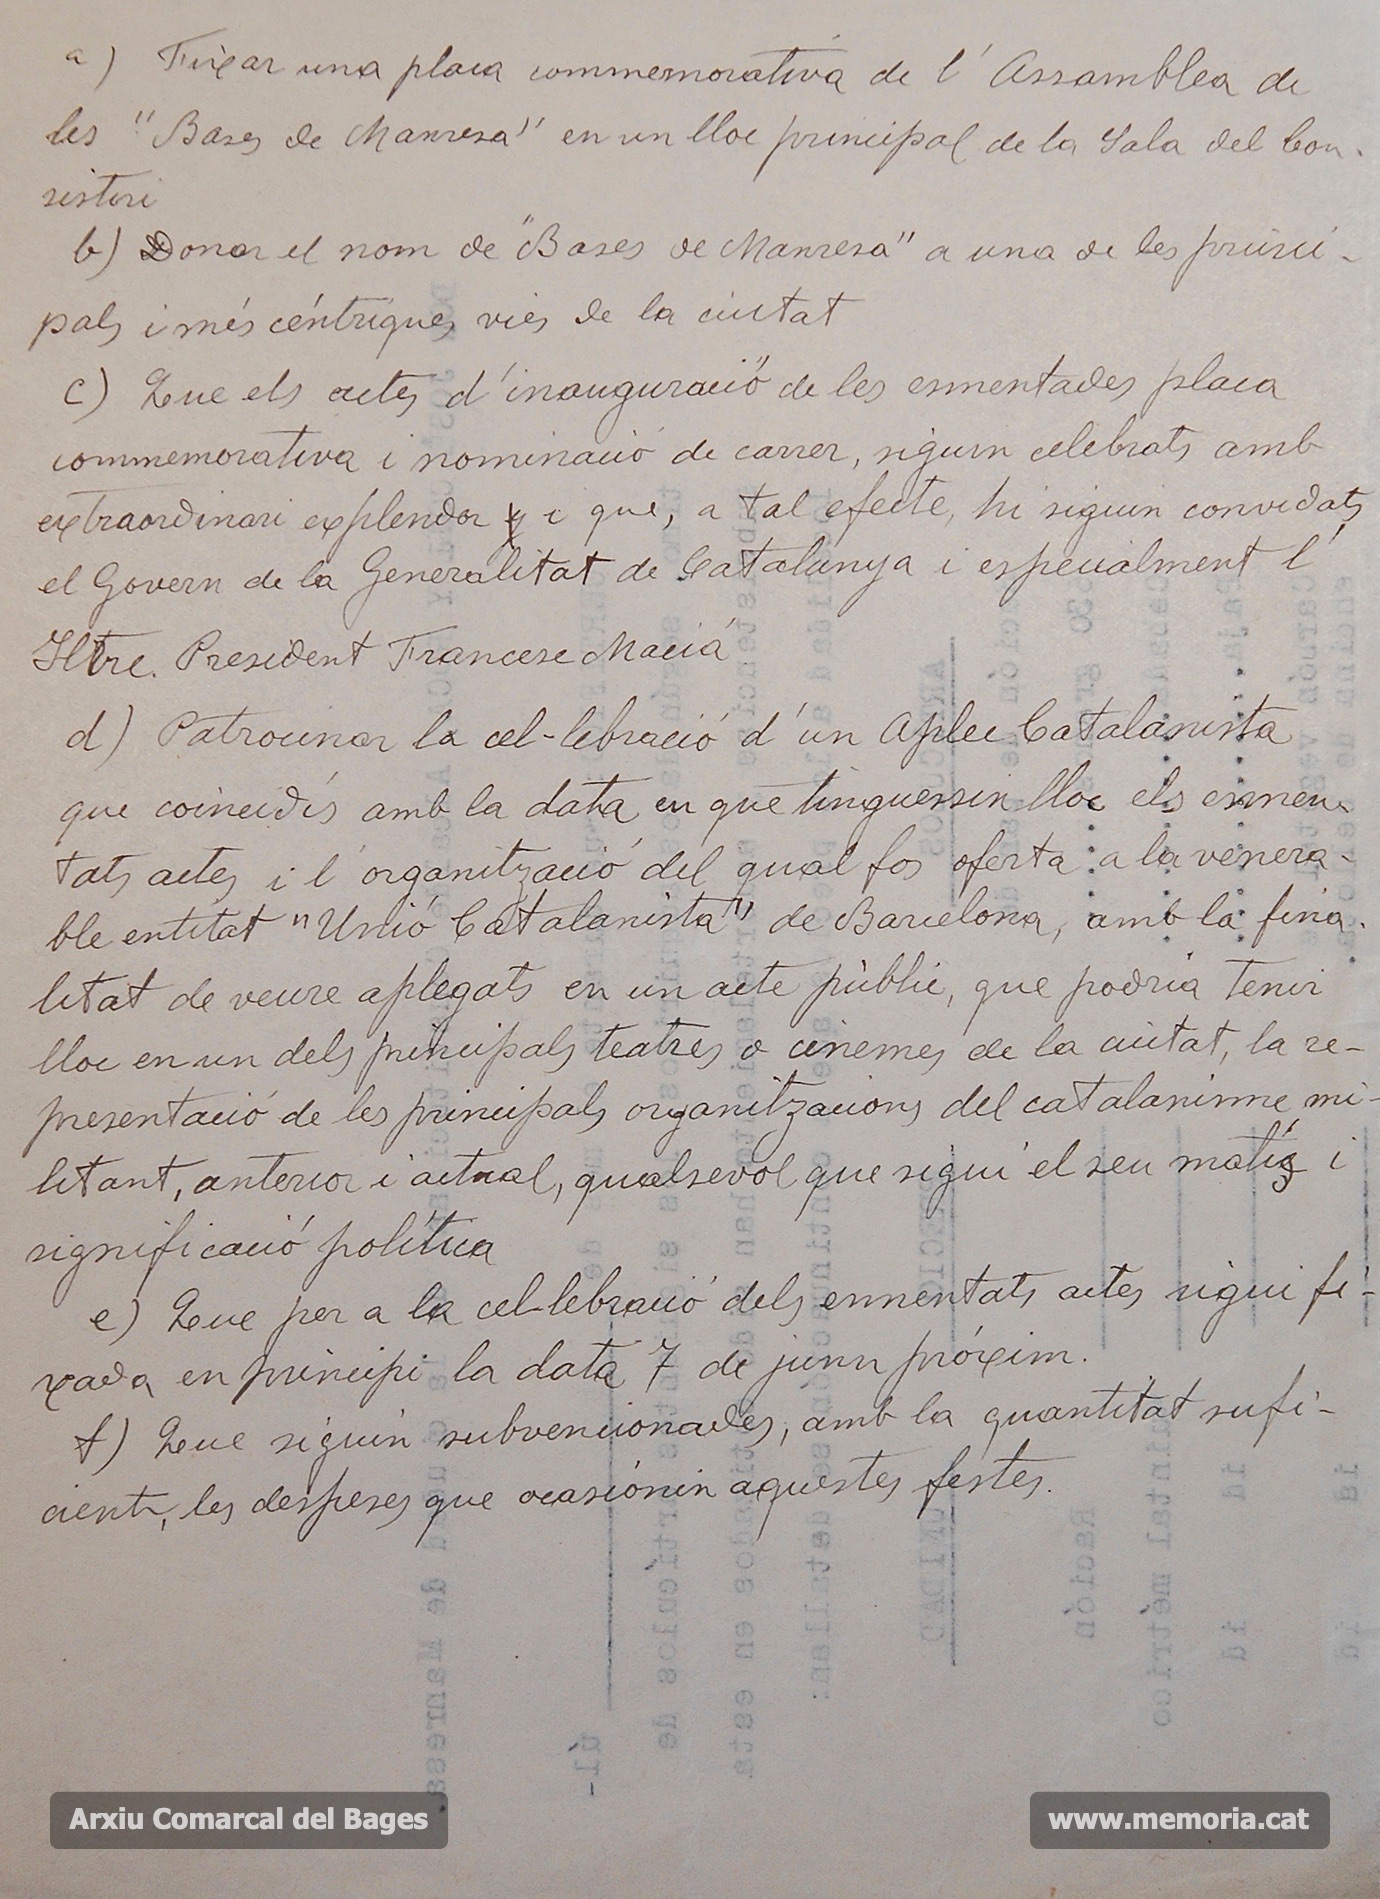 a) Fixar una placa commemorativa de l' Assamblea de
les "Bases de Manresa" en un lloc principal de la Sala del Con-
sistori
b) Donar el nom de "Bases de Manresa" a una de les princi-
pals i més céntriques vies de la ciutat
c) Que els actes d'inauguració de les esmentades placa
commemorativa i nominació de carrer, siguin celebrats amb
extraordinari explendor i que, a tal efecte, hi siguin convidats
el Govern de la Generalitat de Catalunya i especialment l'
Iltre. President Francesc Macià
d) Patrocinar la cel-lebració d'un Aplec Catalanista
que coincidís amb la data en què tinguessin lloc els esmen-
tats actes i l'organització del qual fos oferta a la venera-
ble entitat "Unió Catalanista" de Barcelona, amb la fina-
litat de veure aplegats en un acte públic, que podria tenir
lloc en un dels principals teatres o cinemes de la ciutat, la re-
presentació de les principals organitzacions del catalanisme mi-
litant, anterior i actual, qualsevol que sigui el seu matíz i
significació política
e) Que per a la cel-lebració dels esmentats actes sigui fi-
xada en principi la data 7 de juny próxim.
f) Que siguin subvencionades, amb la quantitat sufi-
cient, les despeses que ocasionin aquestes festes.
Arxiu Comarcal del Bages
www.memoria.cat